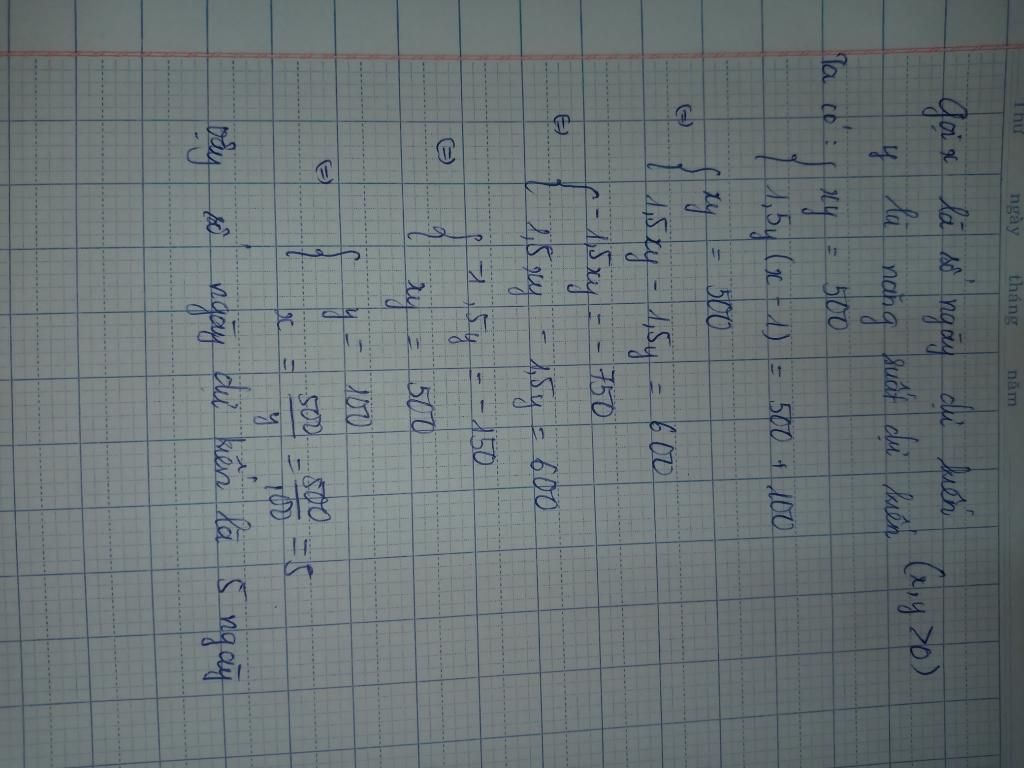 Thứ ngày tháng năm
Gọi x là số ngày dự kiến
y là năng suất dự kiến (x,y >0)
Ta có: { xy = 500
1,5y (x - 1) = 500 + 100
⇔ { xy = 500
1,5xy - 1,5y = 600
⇔ { -1,5xy = -750
1,5xy - 1,5y = 600
⇔ { -1,5y = -150
xy = 500
⇔ { y = 100
x = 500/y = 500/100 = 5
Vậy số ngày dự kiến là 5 ngày